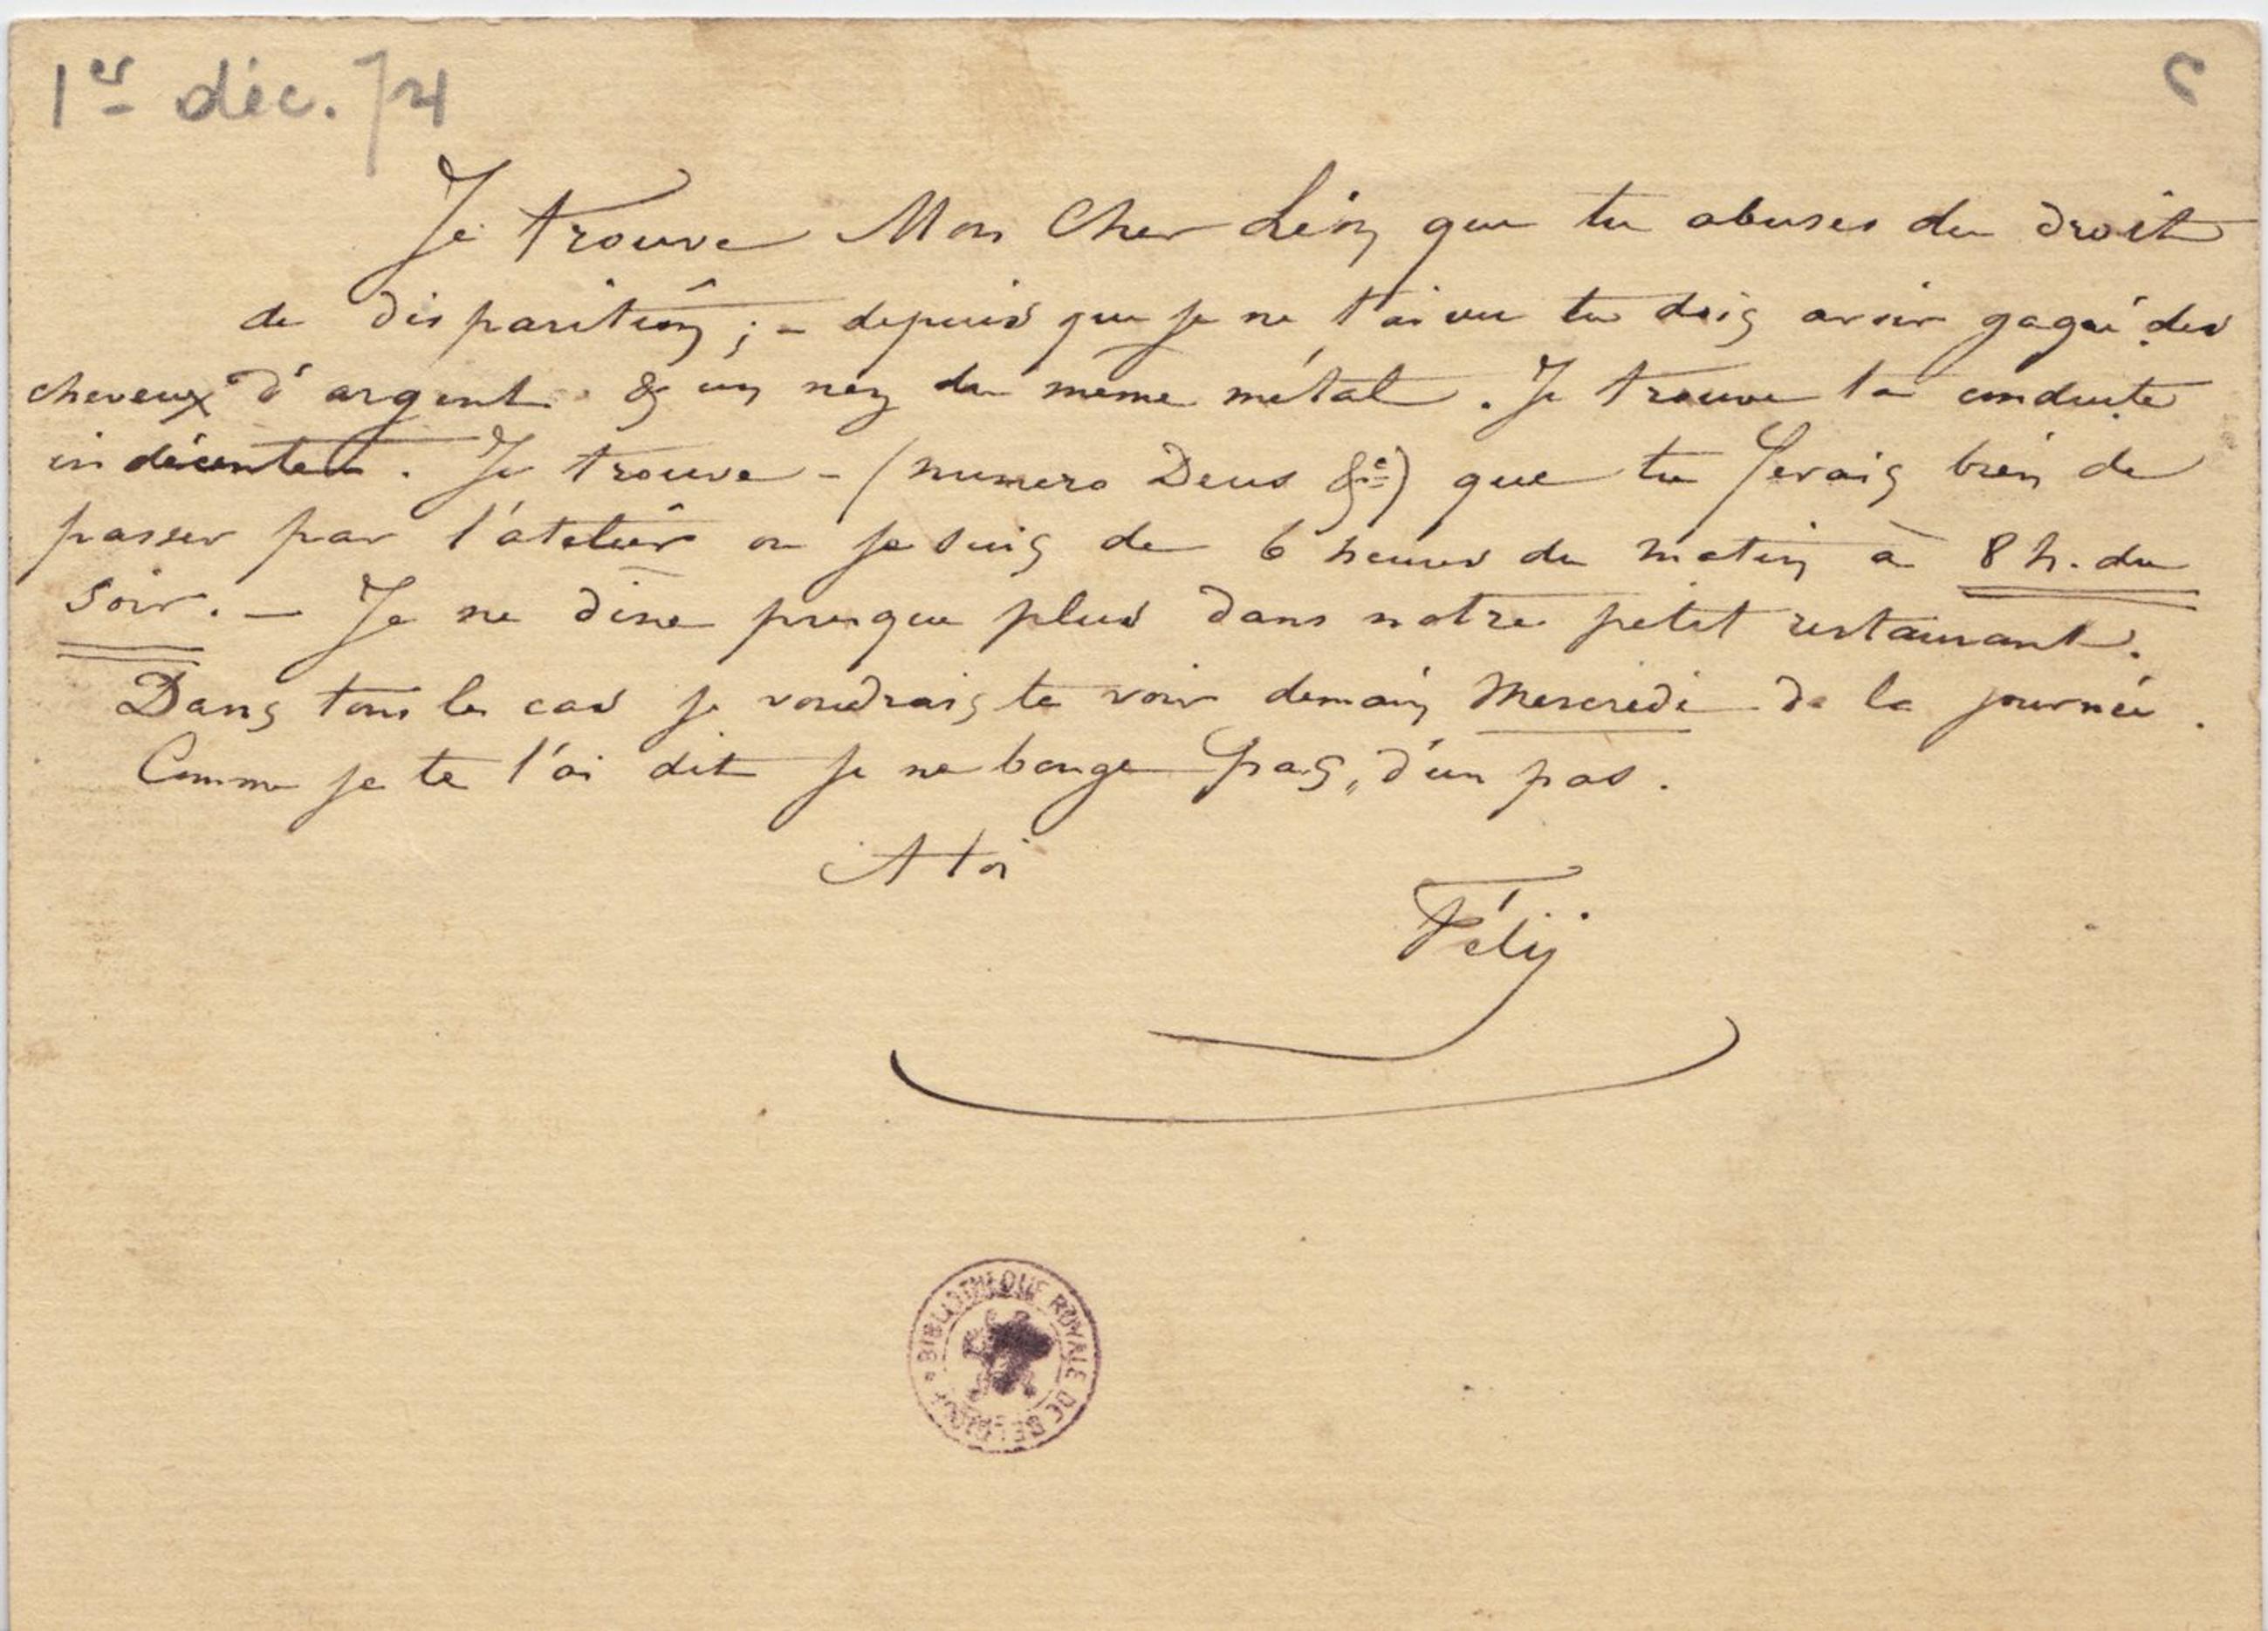 1er déc. 74
Je trouve Mon Cher Léon que tu abuses du droit
de disparition ; – depuis que je ne t'ai vu tu dois avoir gagné des
cheveux d'argent & un nez du même métal. Je trouve ta conduite
indécente. Je trouve – (numero Deus &a) que tu ferais bien de
passer par l'atelier ou je suis de 6 heures du matin à 8 h. du
soir. – Je ne dine presque plus dans notre petit restaurant.
Dans tous les cas je voudrais te voir demain Mercredi de la journée.
Comme je te l'ai dit je ne bouge pas, d'un pas.
A toi
Fély
BIBLIOTHEQUE ROYALE DE BELGIQUE